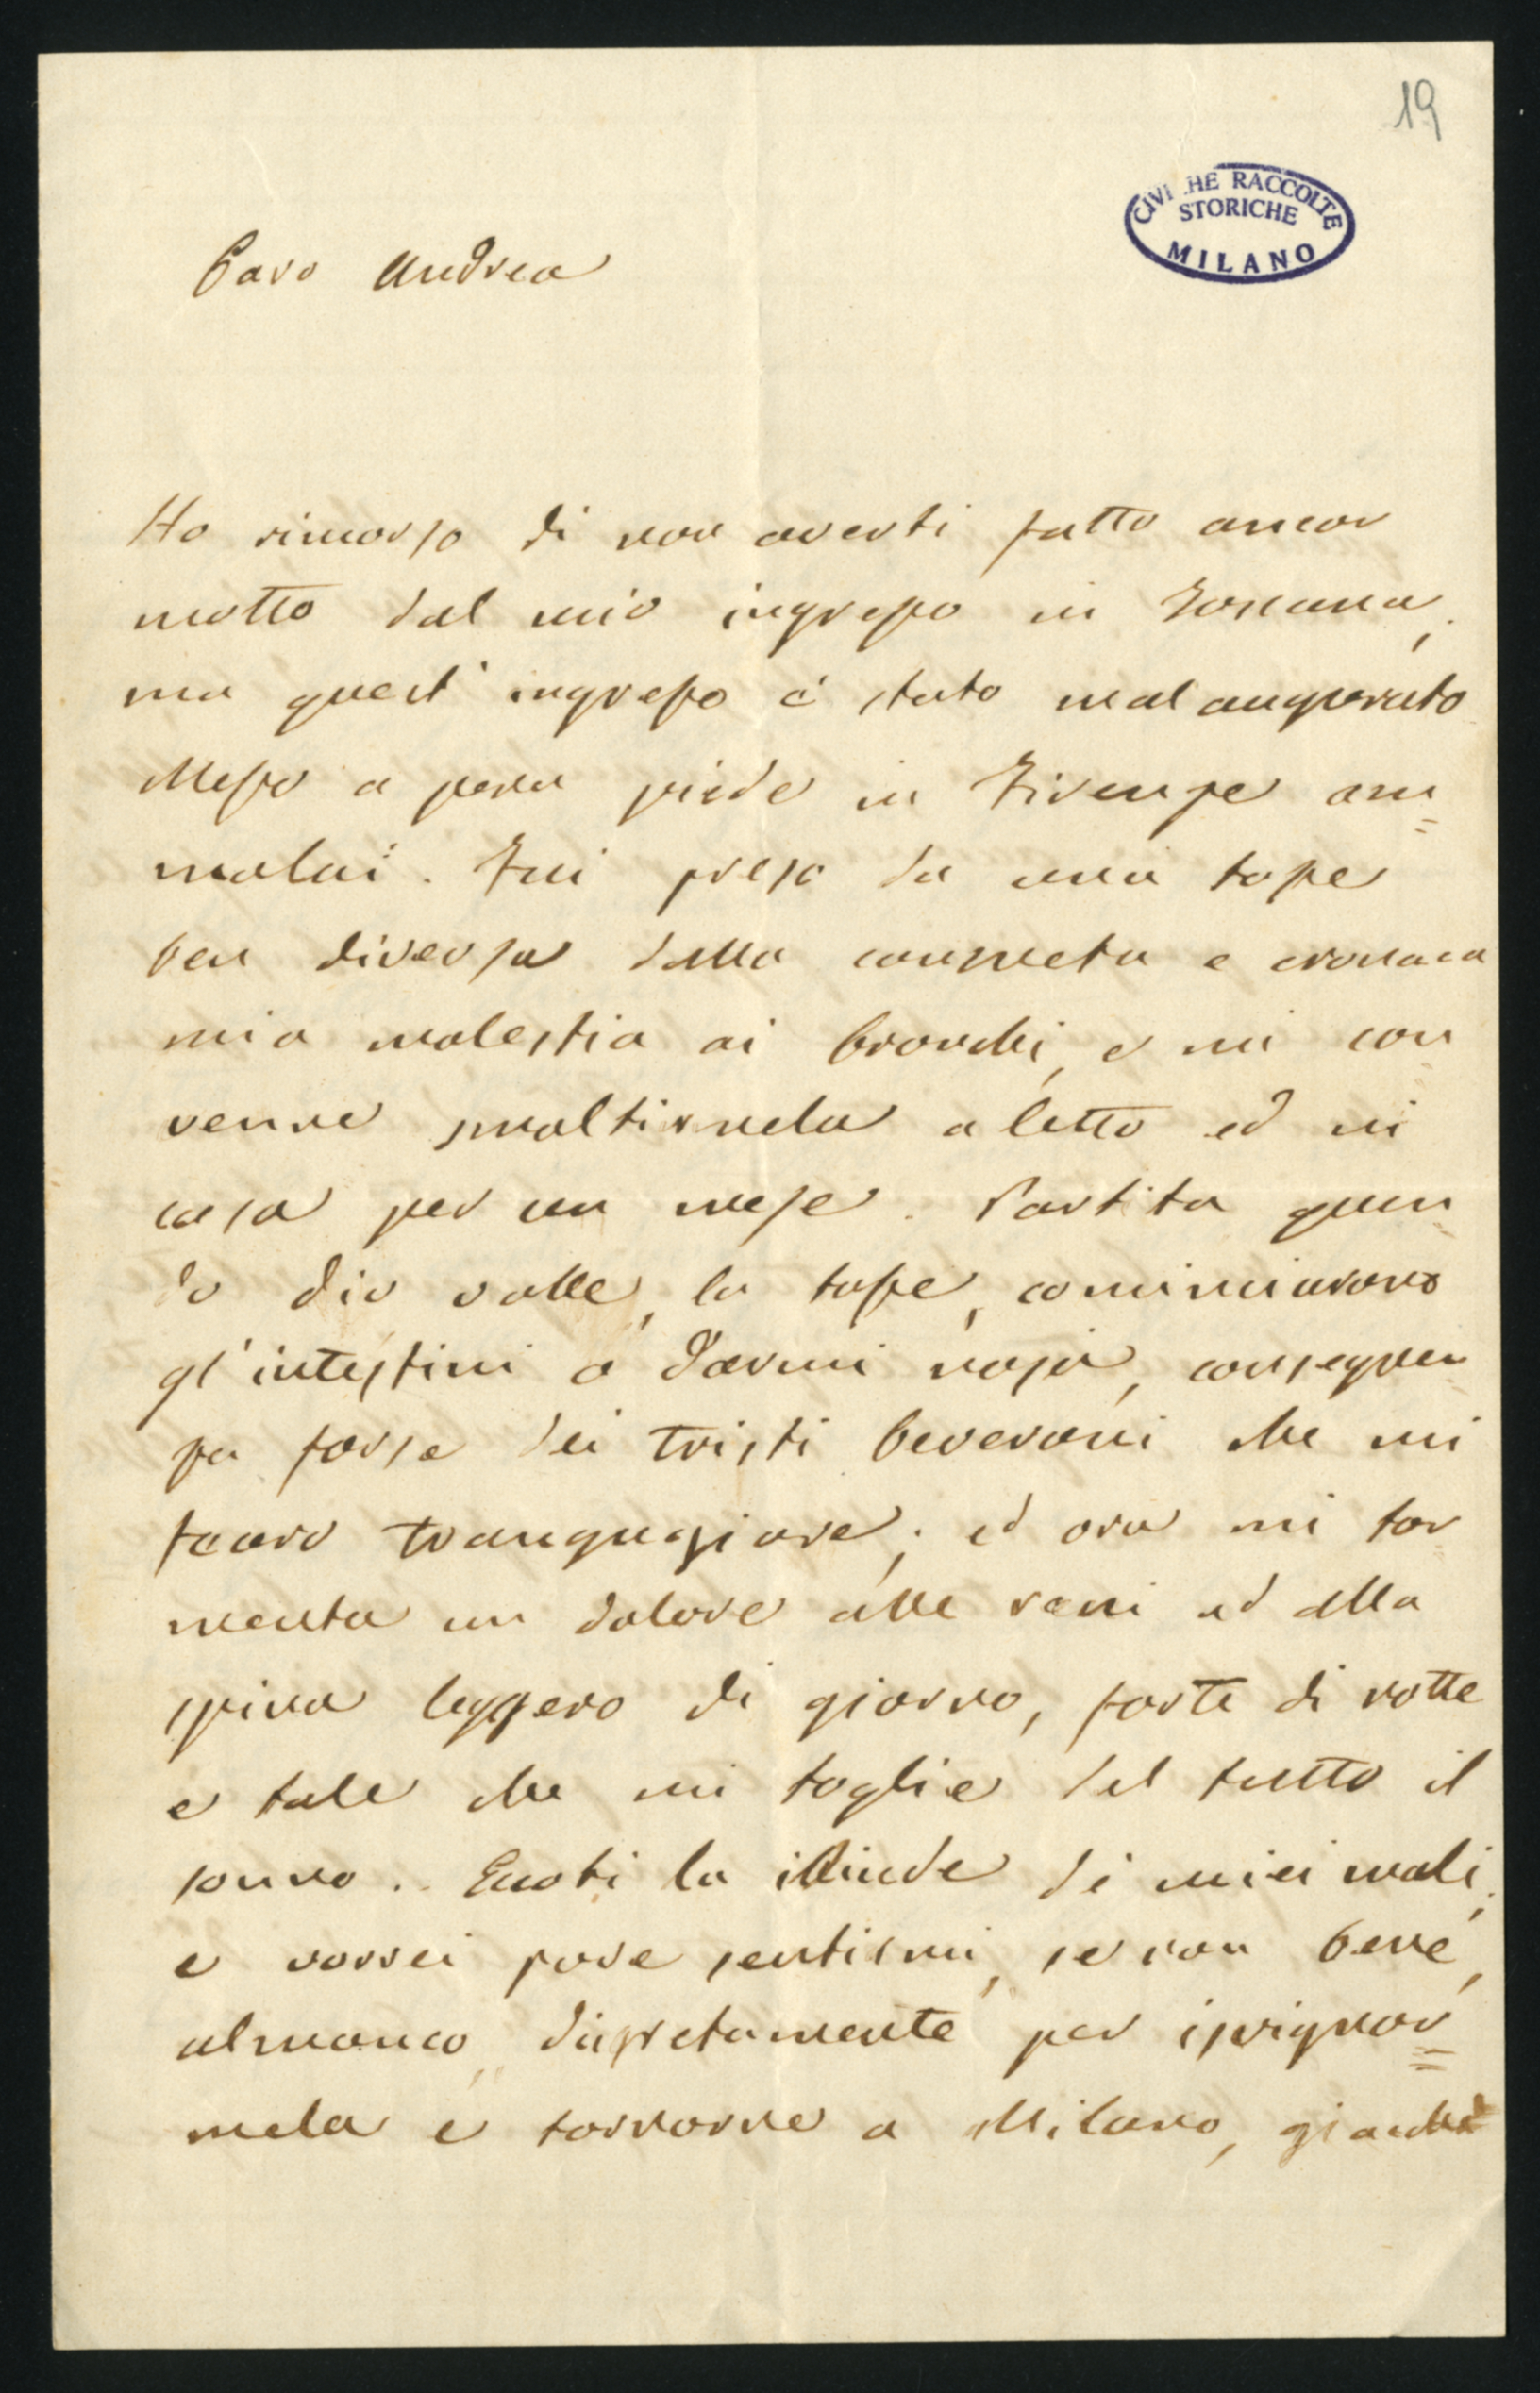 19
CIVICHE RACCOLTE
STORICHE
MILANO
Caro Andrea
Ho rimorso di non averti fatto ancor
motto dal mio ingresso in Toscana,
ma quest'ingresso è stato mal augurato
Messo a pena piede in Firenze am=
malai. Fui preso da una tosse
ben diversa dalla consueta e cronaca
mia molestia ai bronchi, e mi con
venne smaltirmela a letto ed in
casa per un mese. Partita quan
do dio volle, la tosse, cominciarono
gl'intestini a darmi noja, conseguen
za forse dei tristi beveroni che mi
fecero trangugiare; ed ora mi tor
menta un dolore alle reni ed alla
spina leggero di giorno, forte di notte
e tale che mi toglie del tutto il
sonno. Eccoti la iliade de' miei mali;
e vorrei pure sentirmi, se non bene,
almanco discretamente per isvignar=
mela e tornarne a Milano, giacchè